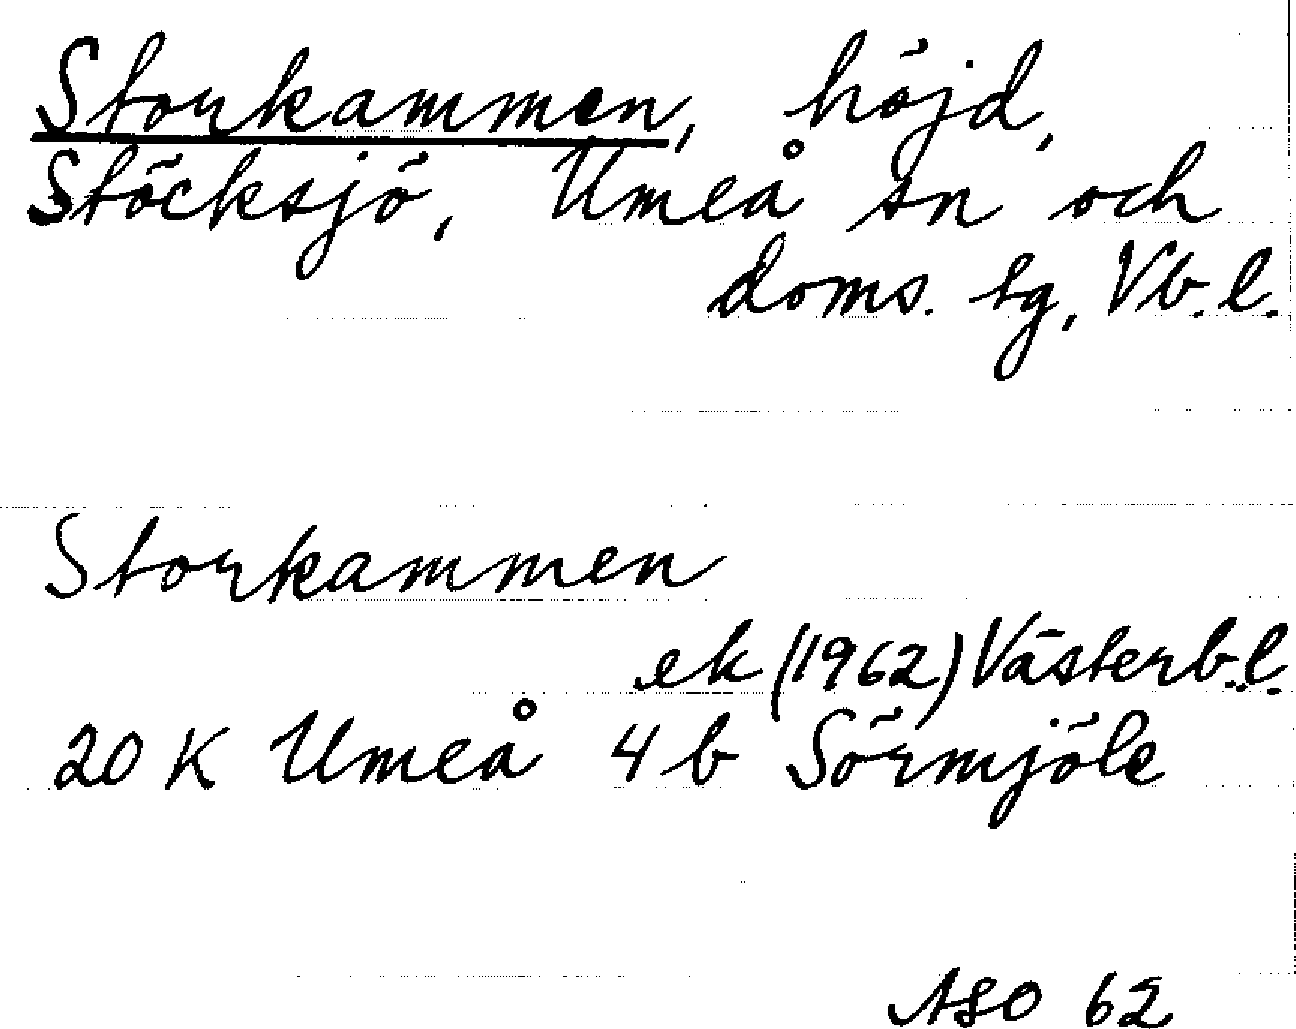 Storkammen, höjd,
Stöcksjö, Umeå sn och
doms. tg, Vb.l.
Storkammen
ek (1962) Västerb.l.
20 K Umeå 4 b Sörmjöle
ASO 62